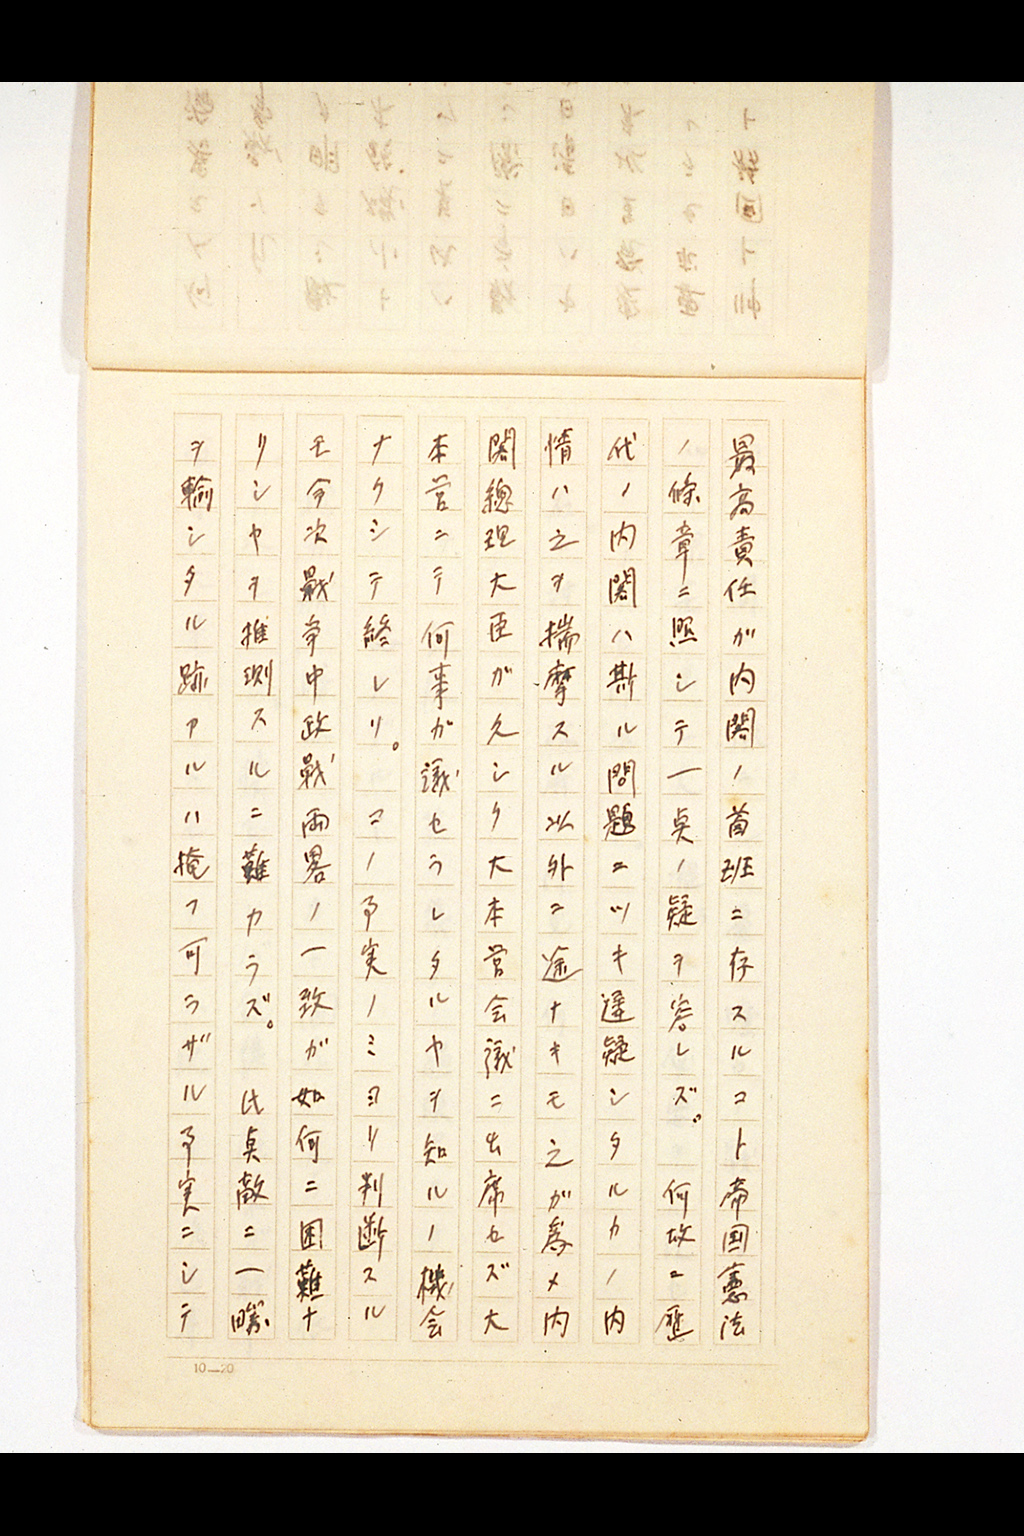 最高責任ガ内閣ノ首班ニ存スルコト帝国憲法
ノ條章ニ照シテ一点ノ疑ヲ容レズ。何故ニ歴
代ノ内閣ハ斯ル問題ニツキ遅疑シタルカノ内
情ハ之ヲ揣摩スル以外ニ途ナキモ之ガ為メ内
閣総理大臣ガ久シク大本営会議ニ出席セズ大
本営ニテ何事ガ議セラレタルヤヲ知ルノ機会
ナクシテ終レリ。コノ事実ノミヨリ判断スル
モ今次戦争中政戦両略ノ一致ガ如何ニ困難ナ
リシヤヲ推測スルニ難カラズ。此点敵ニ一籌
ヲ輸シタル跡アルハ掩フ可ラザル事実ニシテ
10—20